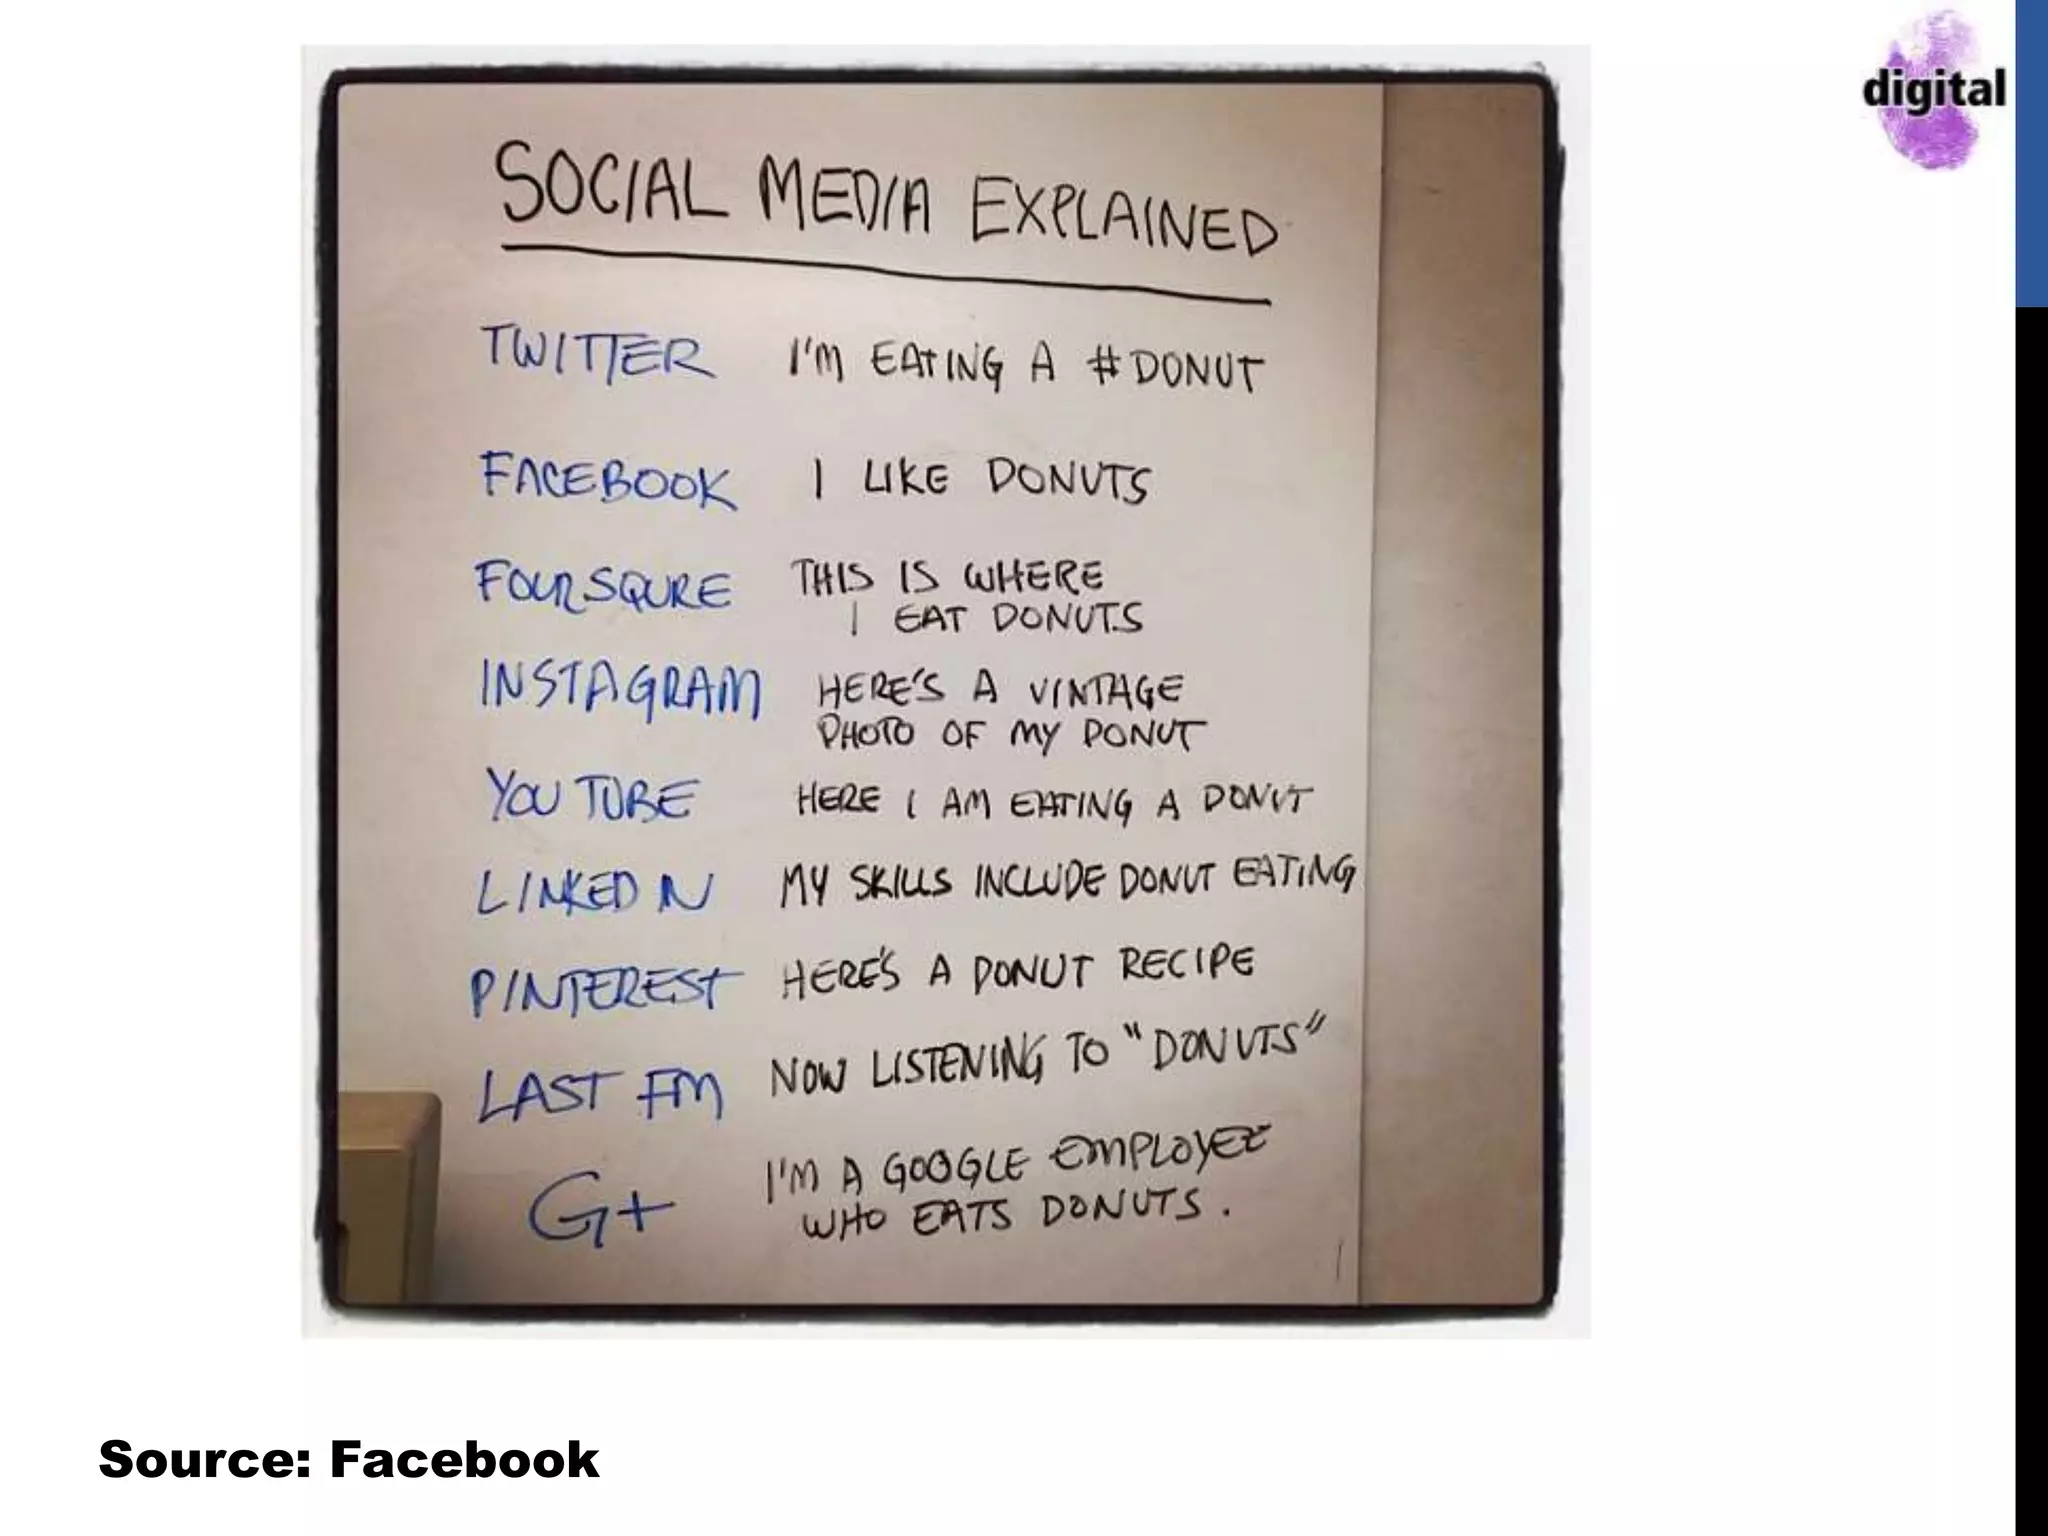 digital
SOCIAL MEDIA EXPLAINED
TWITTER I'M EATING A #DONUT
FACEBOOK I LIKE DONUTS
FOURSQURE THIS IS WHERE
I EAT DONUTS
INSTAGRAM HERE'S A VINTAGE
PHOTO OF MY DONUT
YOU TUBE HERE I AM EATING A DONUT
LINKED IN MY SKILLS INCLUDE DONUT EATING
PINTEREST HERE'S A DONUT RECIPE
LAST FM NOW LISTENING TO "DONUTS"
G+ I'M A GOOGLE EMPLOYEE
WHO EATS DONUTS.
Source: Facebook